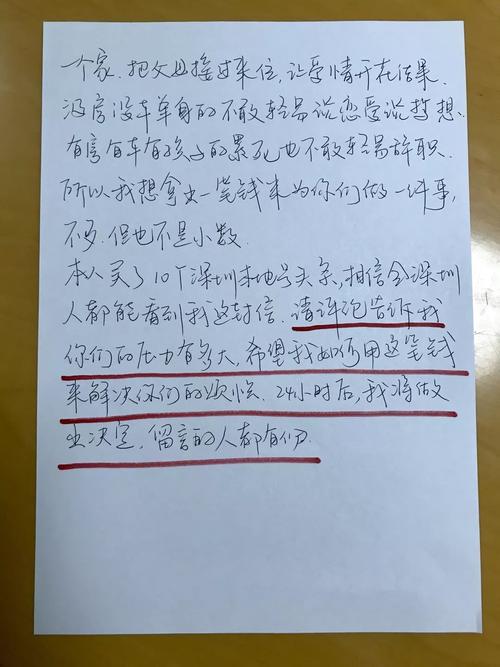 一个家.把父母接过来住,让爱情开花结果.
没房没车单身的不敢轻易说恋爱说梦想、
有房有车有孩子的累死也不敢轻易辞职.
所以我想拿出一笔钱来为你们做一件事,
不多.但也不是小数.
本人买了10个深圳本地号头条,相信全深圳
人都能看到我这封信.请详细告诉我
你们的压力有多大.希望我如何用这笔钱
来解决你们的烦恼.24小时后,我将做
出决定,留言的人都有份.